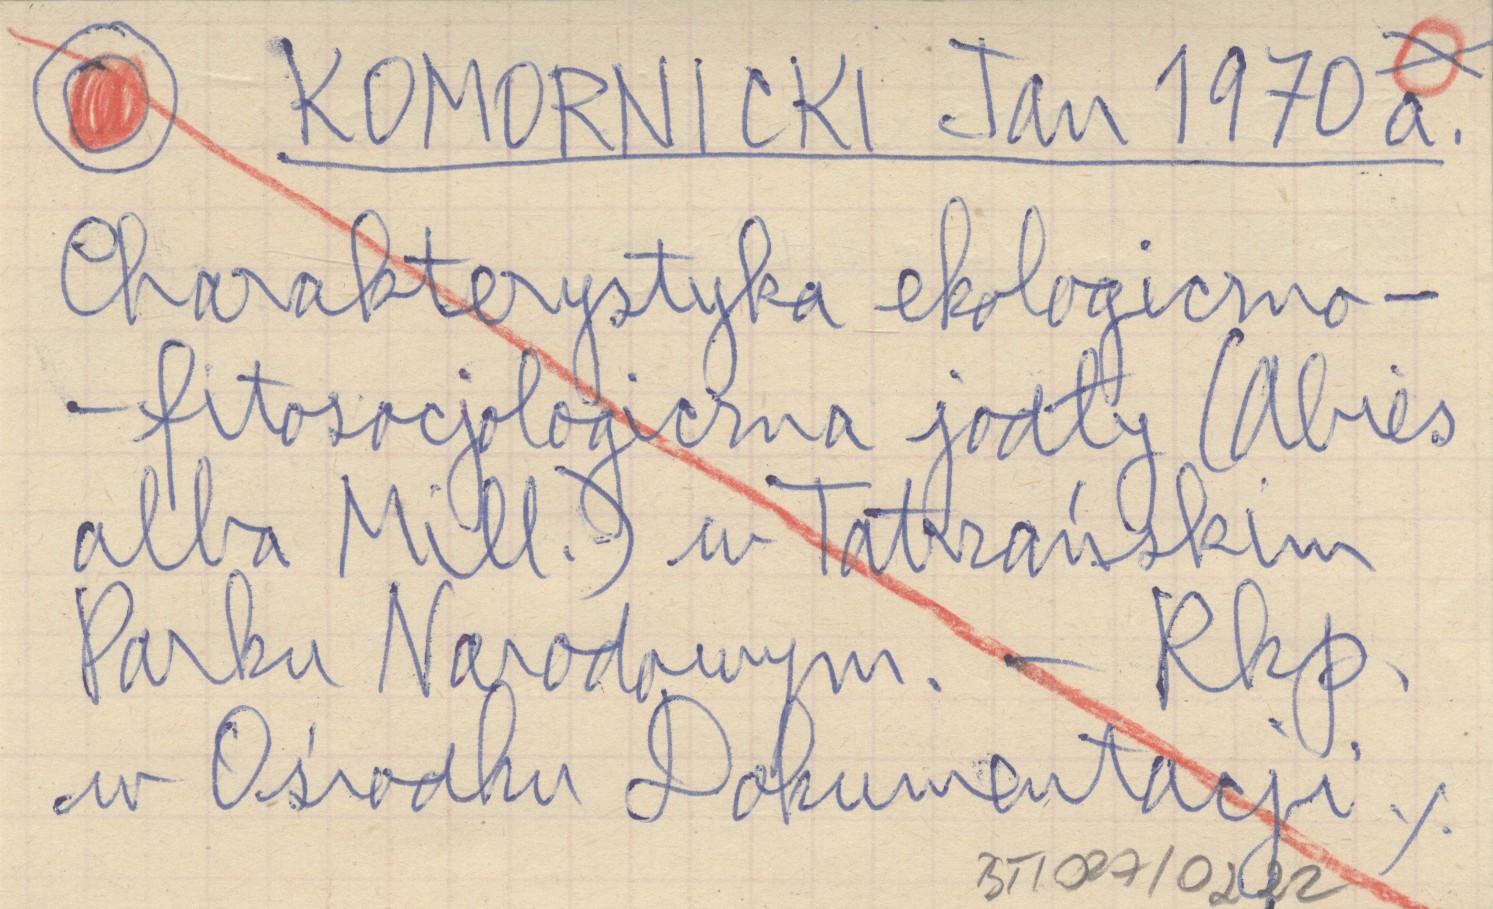 KOMORNICKI Jan 1970 a.
Charakterystyka ekologiczno-
-fitosocjologiczna jodły (Abies
alba Mill.) w Tatrzańskim
Parku Narodowym. – Rkp.
w Ośrodku Dokumentacji ./.
BTI 027/0222